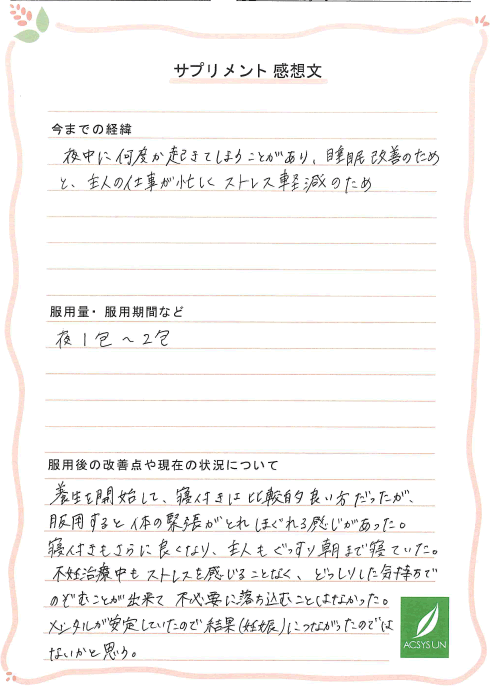 サプリメント 感想文
今までの経緯
夜中に何度か起きてしまうことがあり、睡眠改善のため
と、主人の仕事が忙しく ストレス軽減のため
服用量・服用期間など
夜 1包 〜 2包
服用後の改善点や現在の状況について
養生を開始して、寝付きは比較的良い方だったが、
服用すると体の緊張がとれ ほぐれる感じがあった。
寝付きもさらに良くなり、主人もぐっすり朝まで寝ていた。
不妊治療中もストレスを感じることなく、どっしりした気持ちで
のぞむことが出来て 不必要に落ち込むことはなかった。
メンタルが安定していたので結果(妊娠)につながったのでは
ないかと思う。
ACSYSUN